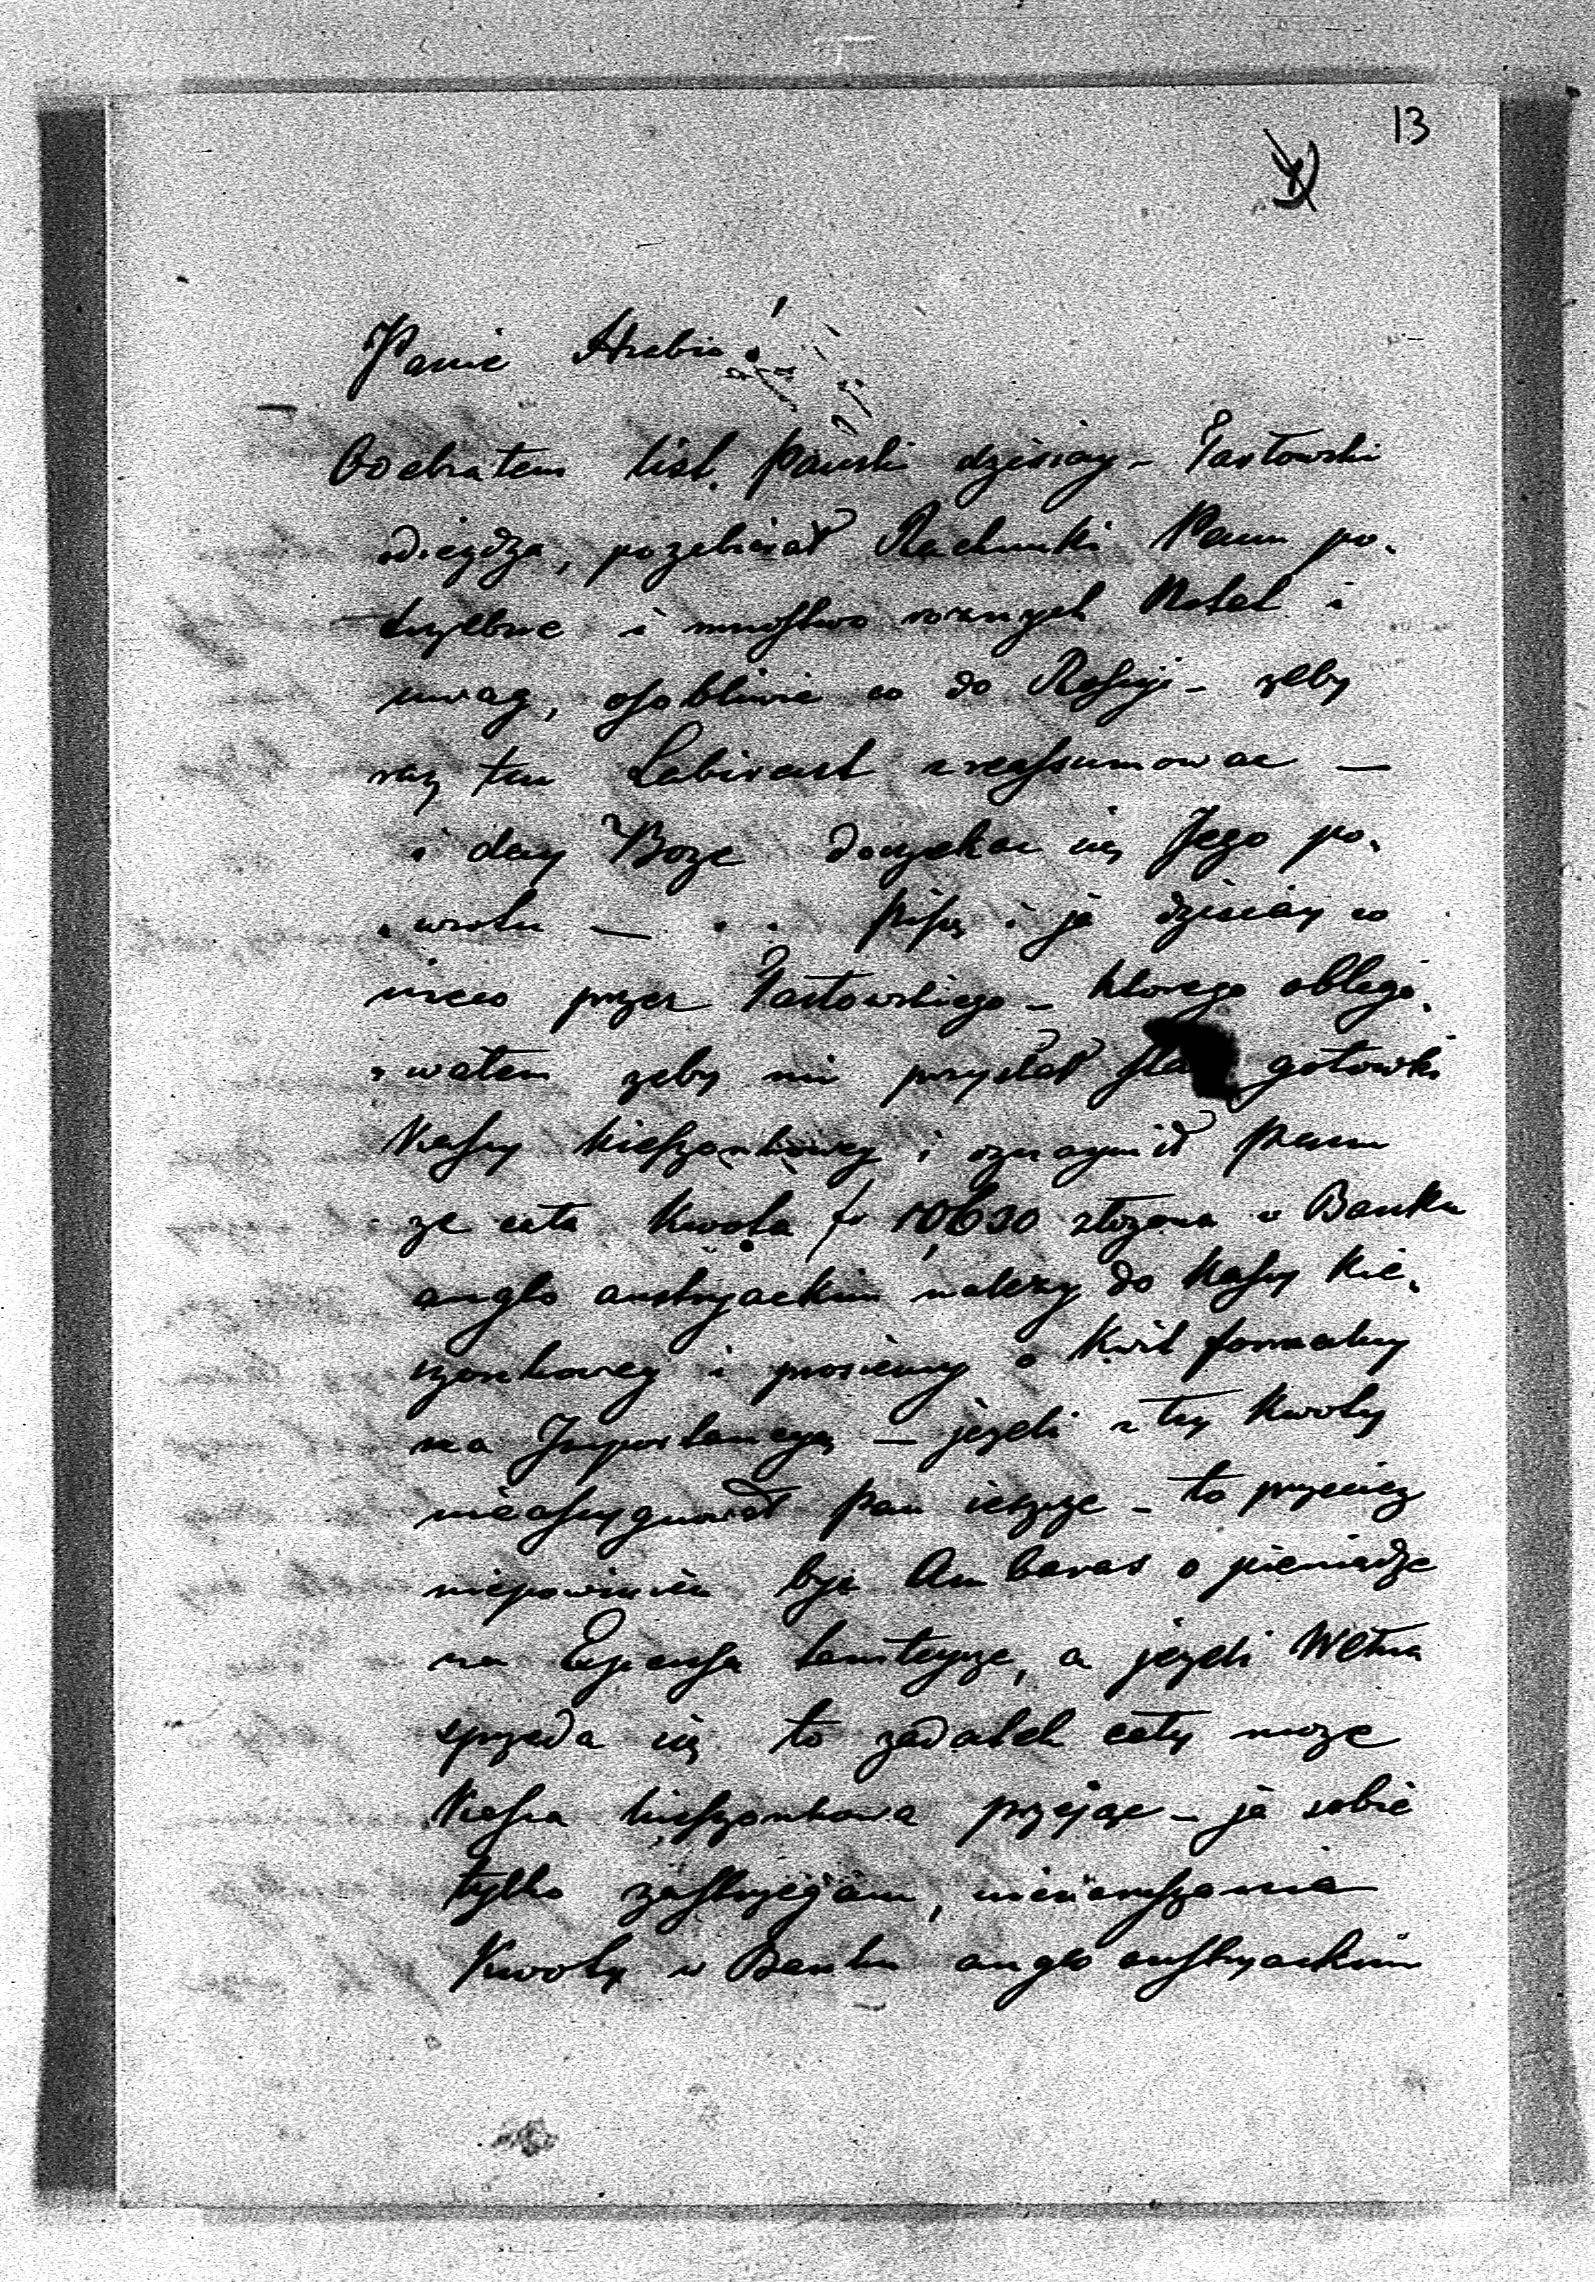 13
Panie Hrabio!
Odebrałem list Pański dzisiay - Jasłowski
odiezdza, pozebierał Rachunki Panu po-
trzebne i mnostwo roznych Notat i
uwag, osobliwie co do Rossyi - zeby
raz ten Labirint zreassumowac —
i day Boze doczekac się Jego po-
-wrotu — . . Piszę i ja dzisiay co
nieco przez Jasłowskiego - ktorego obligo-
-wałem zeby mi przysłał gotowki
Kassy kieszonkowey i oznaymił Panu
ze cała Kwota fr 10,630 złozona w Banku
anglo austryackim nalezy do Kassy kie-
szonkowey i prosiemy o Kwit formalny
na Importancyą — jezeli z tey Kwoty
nieassygnował Pan ieszcze - to przeciez
niepowinien byc Ambaras o pieniądze
na Expensa tamteysze, a jezeli Wełna
sprzeda się to zadatek cały moze
Kassa kieszonkowa przejąc - ja sobie
tylko zastrzegam, nienaruszania
Kwoty w Banku anglo austryackim